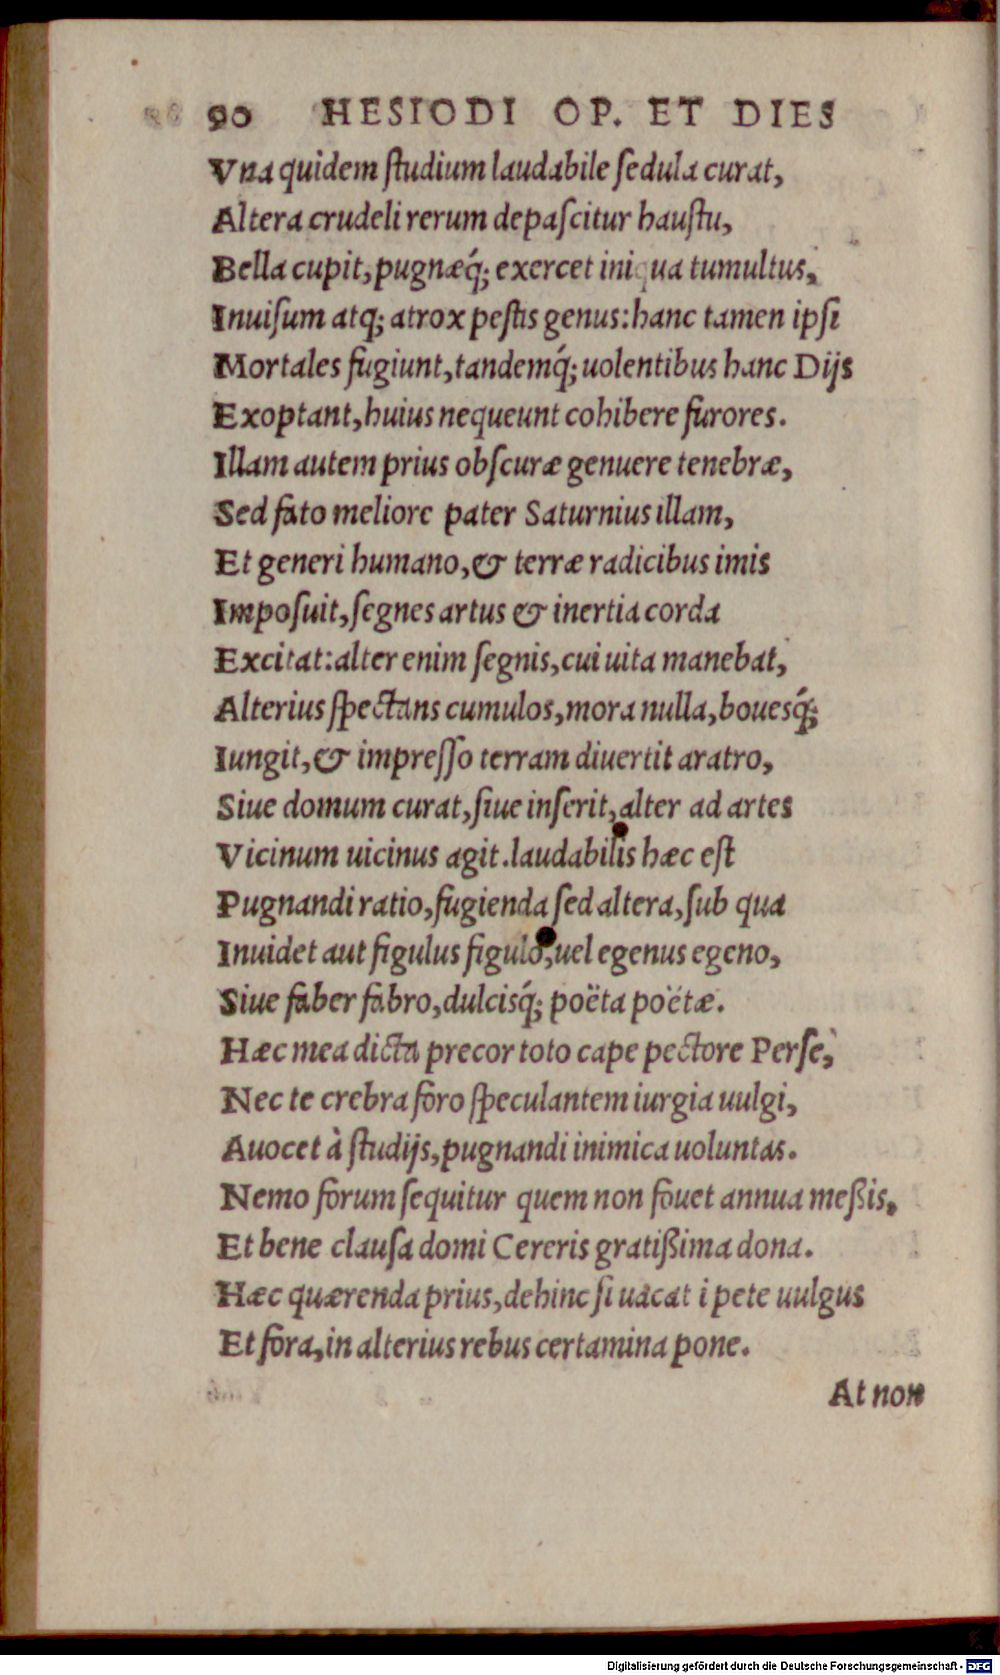 90 HESIODI OP. ET DIES
Vna quidem ſtudium laudabile ſedula curat,
Altera crudeli rerum depaſcitur hauſtu,
Bella cupit, pugnæq́; exercet iniqua tumultus,
Inuiſum atq; atrox peſtis genus: hanc tamen ipſi
Mortales fugiunt, tandemq́; uolentibus hanc Dijs
Exoptant, huius nequeunt cohibere furores.
Illam autem prius obſcuræ genuere tenebræ,
Sed fato meliore pater Saturnius illam,
Et generi humano, & terræ radicibus imis
Impoſuit, ſegnes artus & inertia corda
Excitat: alter enim ſegnis, cui uita manebat,
Alterius ſpectans cumulos, mora nulla, bouesq́;
Iungit, & impreſſo terram diuertit aratro,
Siue domum curat, ſiue inſerit, alter ad artes
Vicinum uicinus agit. laudabilis hæc eſt
Pugnandi ratio, fugienda ſed altera, ſub qua
Inuidet aut figulus figulo, uel egenus egeno,
Siue faber fabro, dulcisq́; poëta poëtæ.
Hæc mea dicta precor toto cape pectore Perſe,
Nec te crebra foro ſpeculantem iurgia uulgi,
Auocet à ſtudijs, pugnandi inimica uoluntas.
Nemo forum ſequitur quem non fouet annua meßis,
Et bene clauſa domi Cereris gratißima dona.
Hæc quærenda prius, dehinc ſi uacat i pete uulgus
Et fora, in alterius rebus certamina pone.
At non
Digitalisierung gefördert durch die Deutsche Forschungsgemeinschaft - DFG